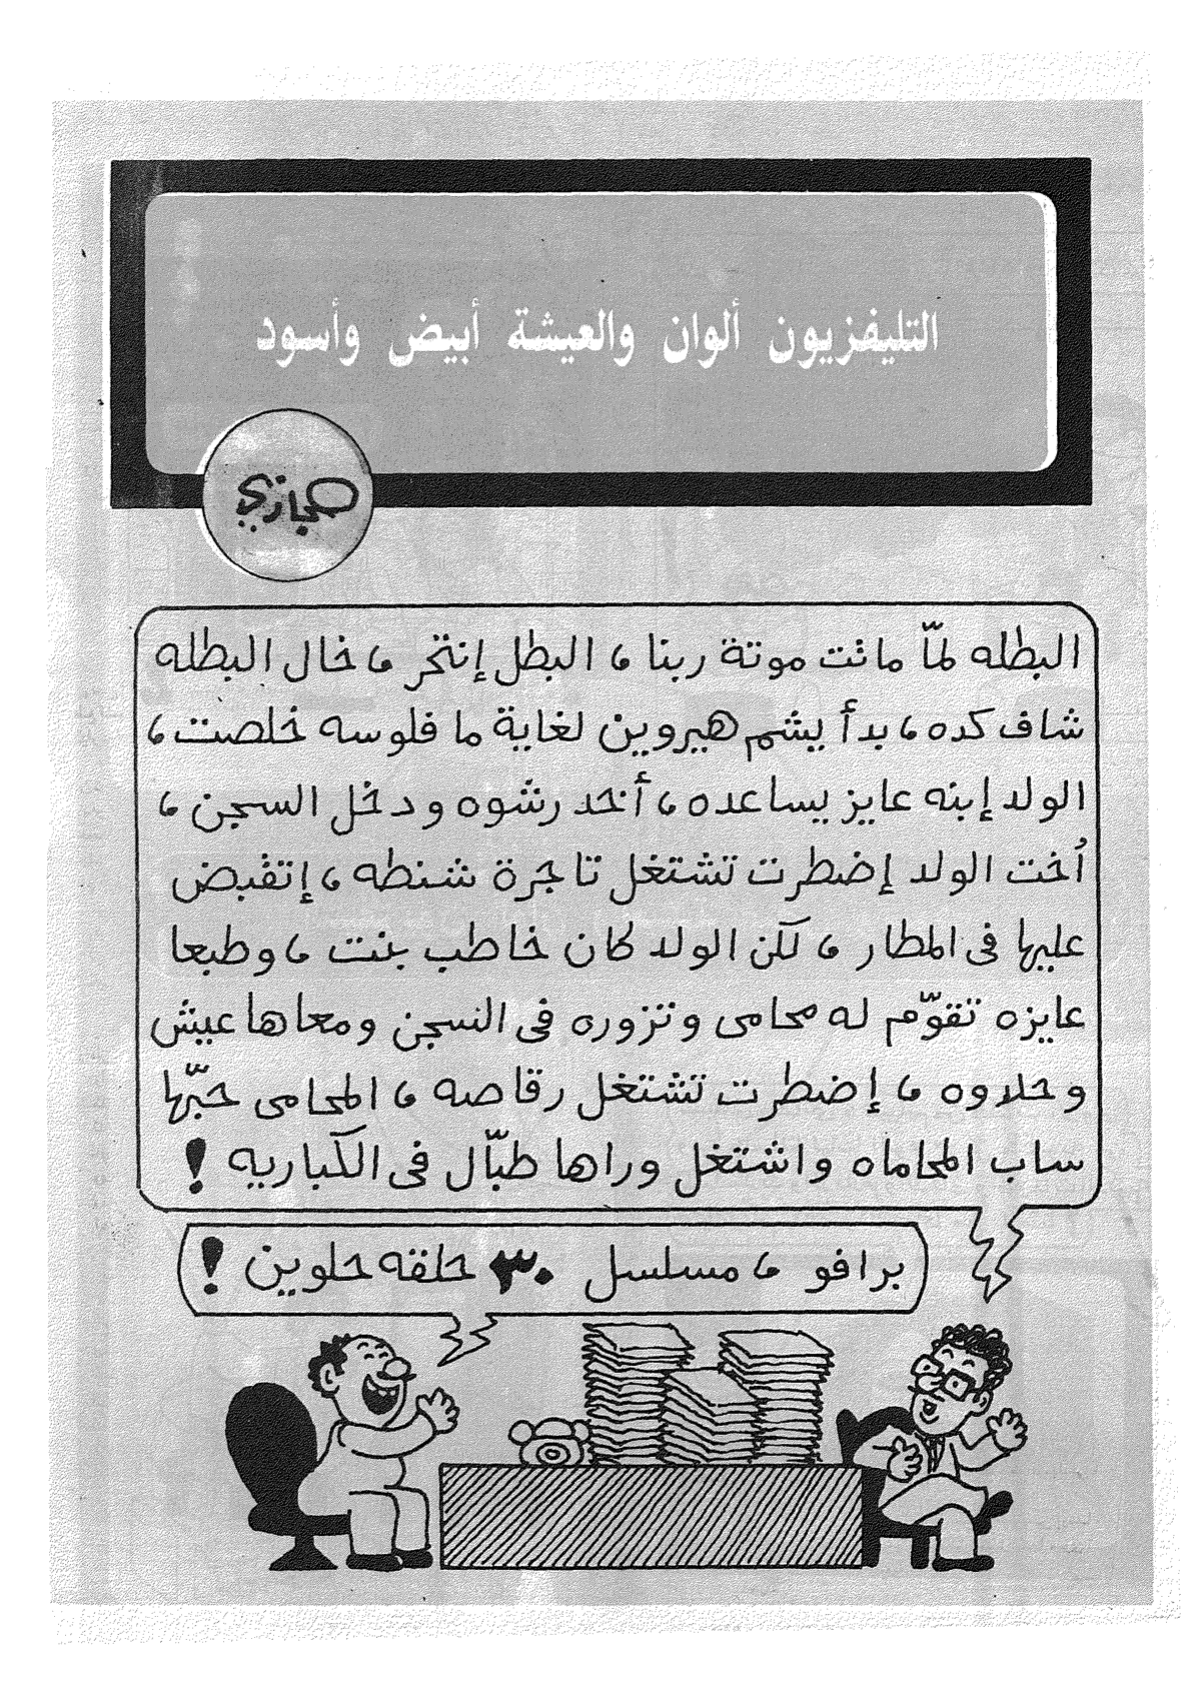 التليفزيون ألوان والعيشة أبيض وأسود
حجازي
البطله لمّا ماتت موتة ربنا، البطل إنتحر، خال البطله
شاف كده، بدأ يشم هيروين لغاية ما فلوسه خلصت،
الولد إبنه عايز يساعده، أخد رشوه ودخل السجن،
أخت الولد إضطرت تشتغل تاجرة شنطه، إتقبض
عليها فى المطار، لكن الولد كان خاطب بنت، وطبعا
عايزه تقوّم له محامى وتزوره فى السجن ومعاها عيش
وحلاوه، إضطرت تشتغل رقاصه، المحامى حبّها
ساب المحاماه واشتغل وراها طبّال فى الكباريه!
برافو، مسلسل ٣٠ حلقه حلوين!